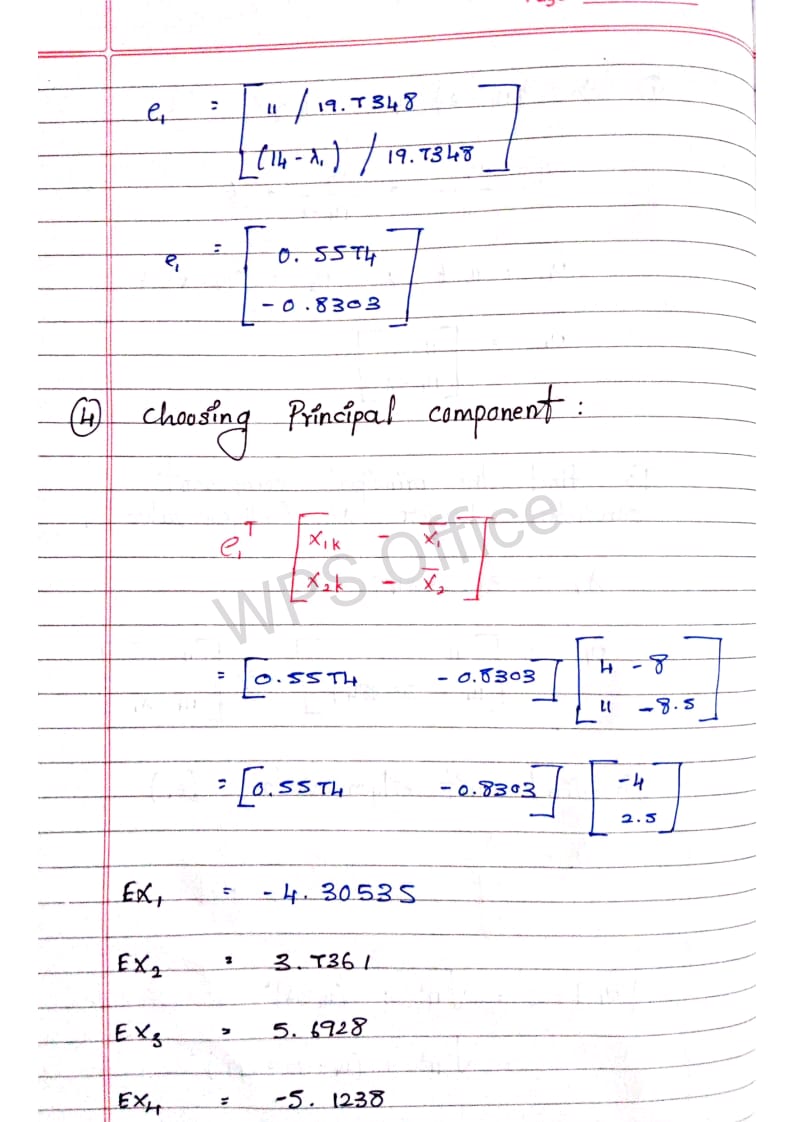 e₁ = [ 11 / 19.7348
(14 - λ₁) / 19.7348 ]
e₁ = [ 0.5574
- 0.8303 ]
④ Choosing Principal component :
e₁ᵀ [ X₁ₖ - X̄₁
X₂ₖ - X̄₂ ]
WPS Office
= [0.5574 - 0.8303] [ 4 - 8
11 - 8.5 ]
= [0.5574 - 0.8303] [ -4
2.5 ]
EX₁ = - 4.30535
EX₂ = 3.7361
EX₃ = 5.6928
EX₄ = -5.1238